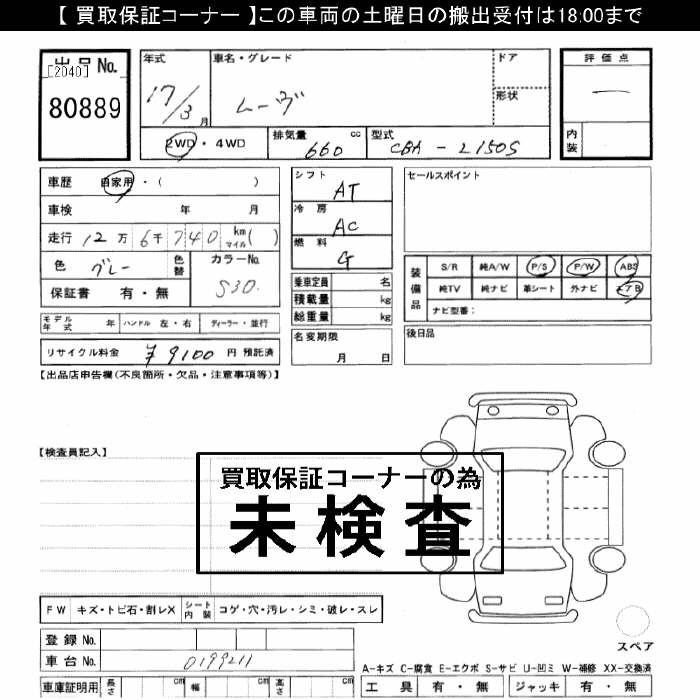 【 買取保証コーナー 】この車両の土曜日の搬出受付は18:00まで
出品No.
[2040]
80889
年式 17/3月
車名・グレード ムーヴ
ドア
形状
評価点 ー
内装
2WD・4WD
排気量 660 cc
型式 CBA-L150S
車歴 自家用・( )
車検 年 月
走行 12万6千740 km マイル( )
色 グレー 色替
カラーNo. S30.
保証書 有・無
シフト AT
冷房 AC
燃料 G
乗車定員 名
積載量 kg
総重量 kg
セールスポイント
装備品
S/R 純A/W P/S P/W ABS
純TV 純ナビ 革シート 外ナビ エアB
ナビ型番:
モデル年式 年 ハンドル 左・右 ディーラー・並行
リサイクル料金 ¥9100 円 預託済
名変期限 月 日
後日品
【出品店申告欄(不良箇所・欠品・注意事項等)】
【検査員記入】
買取保証コーナーの為
未検査
FW キズ・トビ石・割レX シート内装 コゲ・穴・汚レ・シミ・破レ・スレ
登録No.
車台No. 0199211
スペア
A-キズ C-腐食 E-エクボ S-サビ U-凹ミ W-補修 XX-交換済
車庫証明用 長さ cm 幅 cm 高さ cm
工具 有・無 ジャッキ 有・無